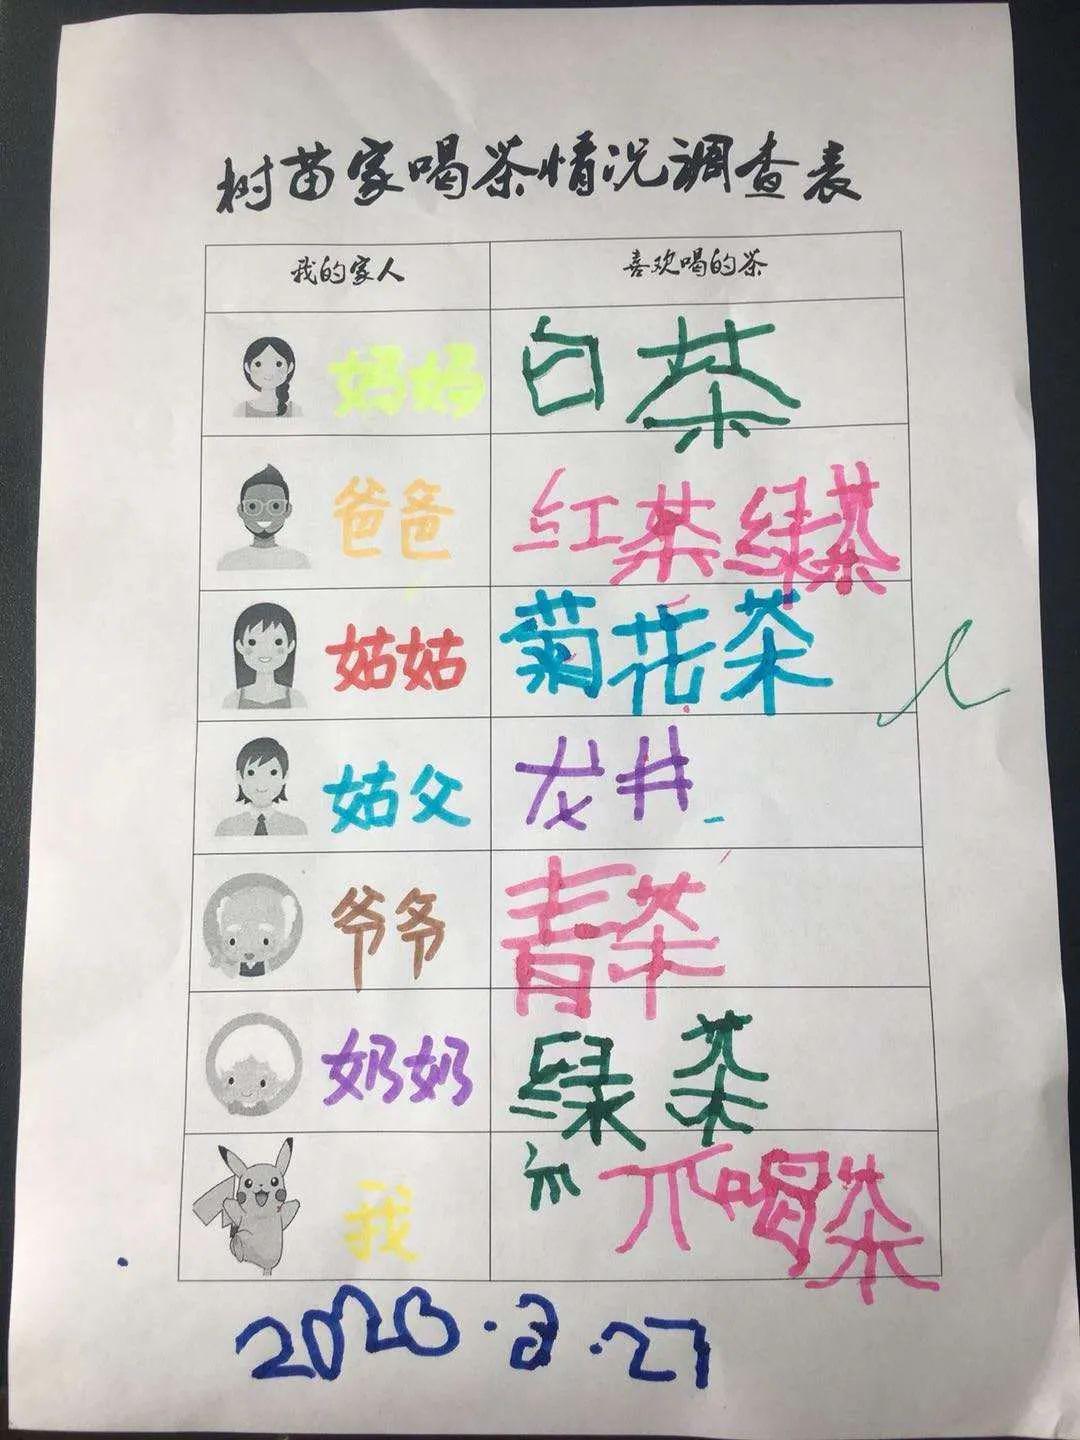 树苗家喝茶情况调查表
我的家人 喜欢喝的茶
妈妈 白茶
爸爸 红茶绿茶
姑姑 菊花茶
姑父 龙井
爷爷 青茶
奶奶 绿茶
我 不喝茶